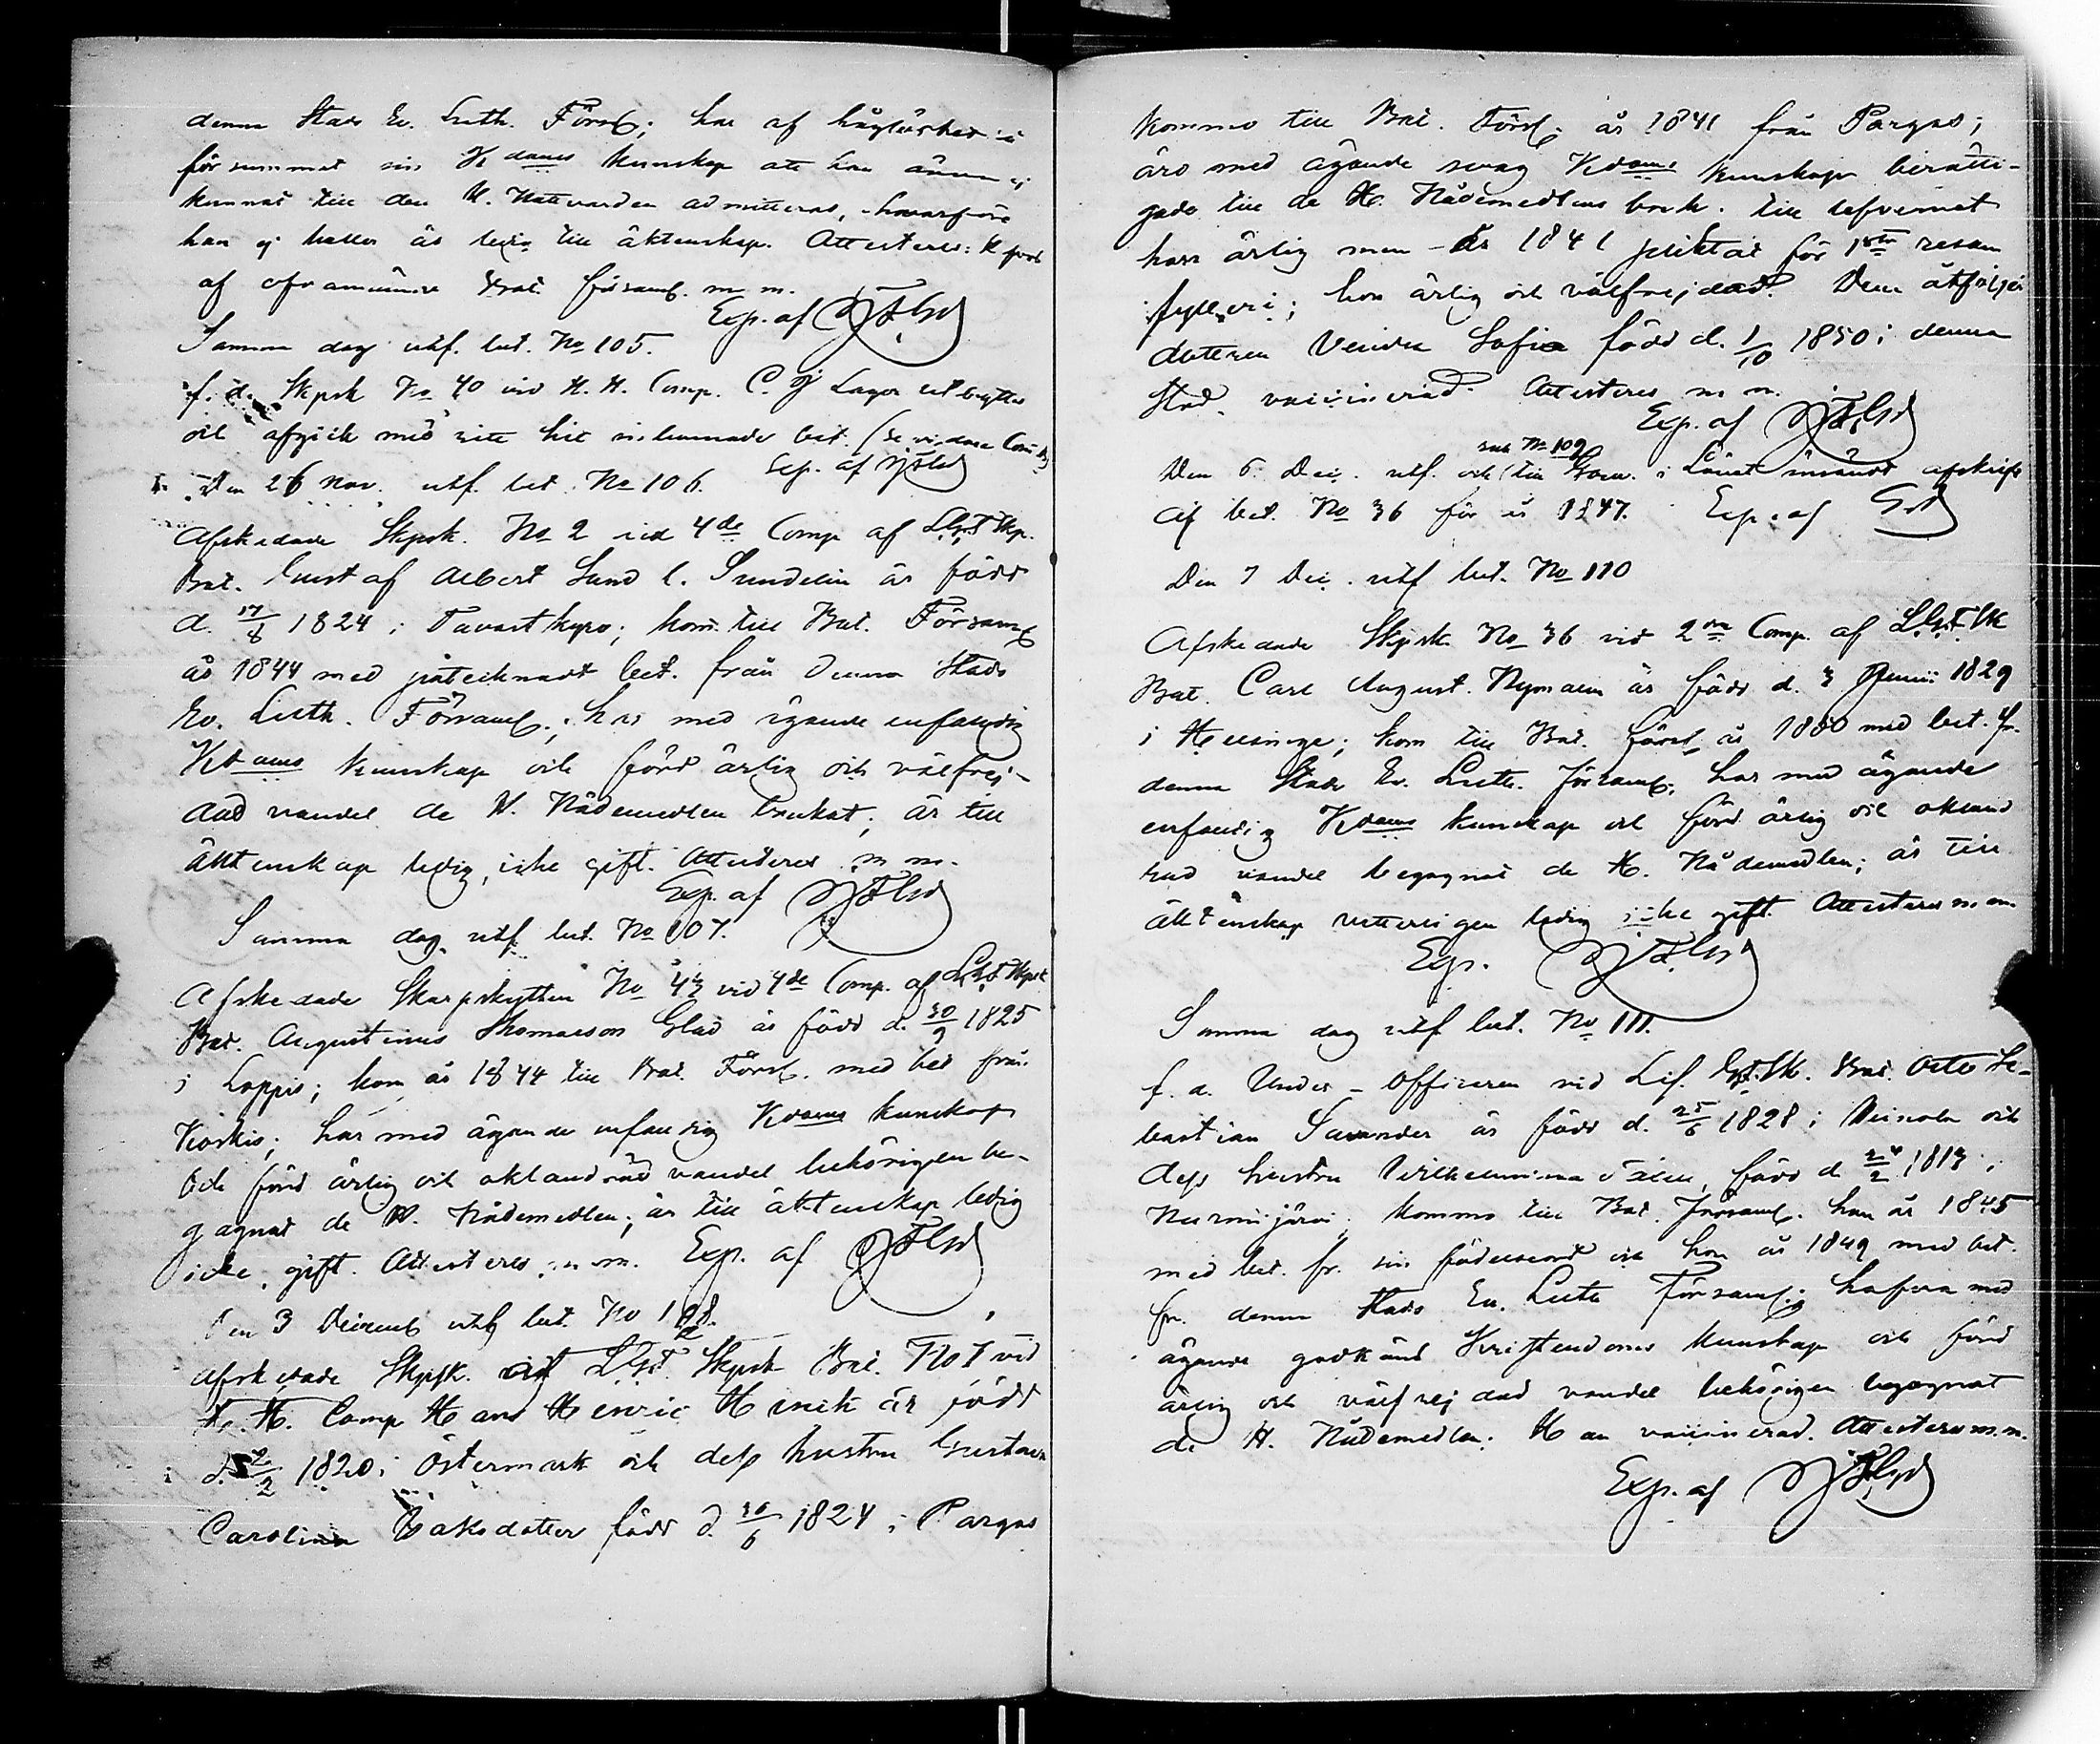 denna Stads Ev. Luth. Förs; har af håglöshet så
försummat sin Kdoms kunskap att han ännu ej
kunnat till den H. Nattvarden admitteras, hvarföre
han ej heller är ledig till äktenskap. Attesteres:
af ofvannämnde Bat. församl. m m.
Exp. af
Samma dag utf. bet. No 105.
f. d. Skpsk No 40 vid H. H. Comp. C. J Lager utbyttes
och afgick med sitt hit inlemnade bet. (se vidare
Den 26 Nov. utf. bet No 106. Exp. af
Afskedade Skpsk. No 2 vid 4de Comp af L.G.F. Skp.
Bat. Gustaf Albert Sund l. Sundelin är född
d. 17/8 1824 i Tavastkyro; kom till Bat. Församl
år 1844 med påtecknadt bet. från denna Stads
Ev. Luth. Församl.; har med ägande enfaldig
Kdoms kunskap och förd ärlig och välfrej-
dad vandel de H. Nådemedlen brukat; är till
äktenskap ledig, icke gift. Attesteres m m.
Exp. af
Samma dag utf. bet. No 107.
Afskedade Skarpskytten No 43 vid 4de Comp. af L.G.F. Skpsk
Bat. Augustinus Thomasson Glad är född d. 30/9 1825
i Loppis; kom år 1844 till Bat. Förs. med bet från
Koskis; har med ägande enfaldig Kdoms kunskap
och förd ärlig och oklandrad vandel behörigen be-
gagnat de H. Nådemedlen; är till äktenskap ledig
icke gift. Attesteres m m. Exp. af
Den 3 Decemb utf bet. No 108.
Afskedade Skpsk. vid L.G.F. Skpsk Bat. No 7 vid
H. H. Comp Hans Henric är född
d. 1820 i Östermark och dess hustru Gustava
Carolina Isaksdotter född d. 1824 i Pargas
kommo till Bat. Förs. år 1841 från Pargas;
äro med ägande svag Kdoms kunskap berätti-
gade till de H. Nådemedlens bruk. till lefvernet
han ärlig men år 1841 pliktat för 1sta resan
fylleri; hon ärlig och välfrejdad. Dem åtföljer
dottren Sofia född d. 1/10 1850 i denna
Stad, vaccinerad Attesteres m m.
Exp. af
sub No 109
Den 6 Dec. utf. och till Guv. i Länet insändt afskrift
af bet. No 36 för år 1847. Exp. af
Den 7 Dec. utf bet. No 110
Afskedade Skpsk No 36 vid 2dra Comp. af L.G.F. Sk
Bat. Carl August Nyman är född d. 3 Junii 1829
i Helsinge; kom till Bat. Förs år 1850 med bet. fr.
denna Stads Ev. Luth. Församl; har med ägande
enfaldig Kdoms kunskap och förd ärlig och okland
rad vandel begagnat de H. Nådemedlen; är till
äktenskap vetterligen ledig icke gift Attesteres m m.
Exp.
Samma dag utf bet. No 111.
f. d. Under-Officeren vid Lif. G.F. Sk. Bat. Otto Se-
bastian Savander är född d. 25/6 1828 i och
dess hustru Wilhelmina född d 1813 i
Nurmijärvi; kommo till Bat. Församl. han år 1845
med bet. fr. sin födelseort och hon år 1849 med bet.
fr. denna Stads Ev. Luth Församl; hafva med
ägande godkänd Kristendoms kunskap och förd
ärlig och välfrejdad vandel behörigen begagnat
de H. Nådemedlen. Han vaccinerad. Attesteres m.m.
Exp. af